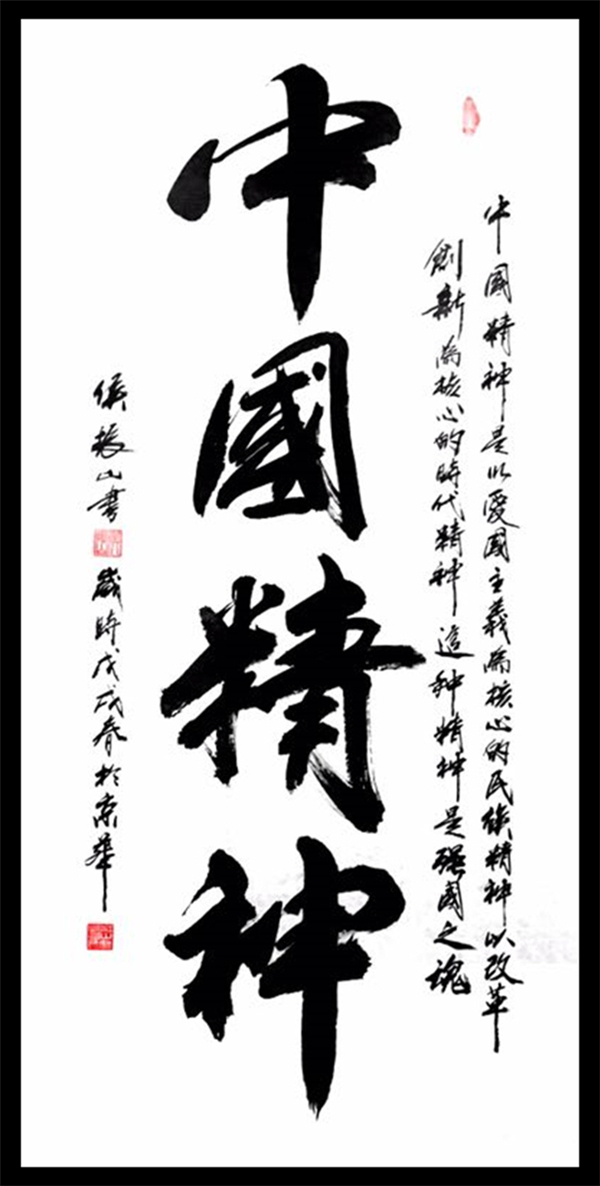 中國精神是以愛國主義為核心的民族精神以改革
創新為核心的時代精神這种精神是强國之魂
中國精神
侯振山書
歲時戊戌春於京華